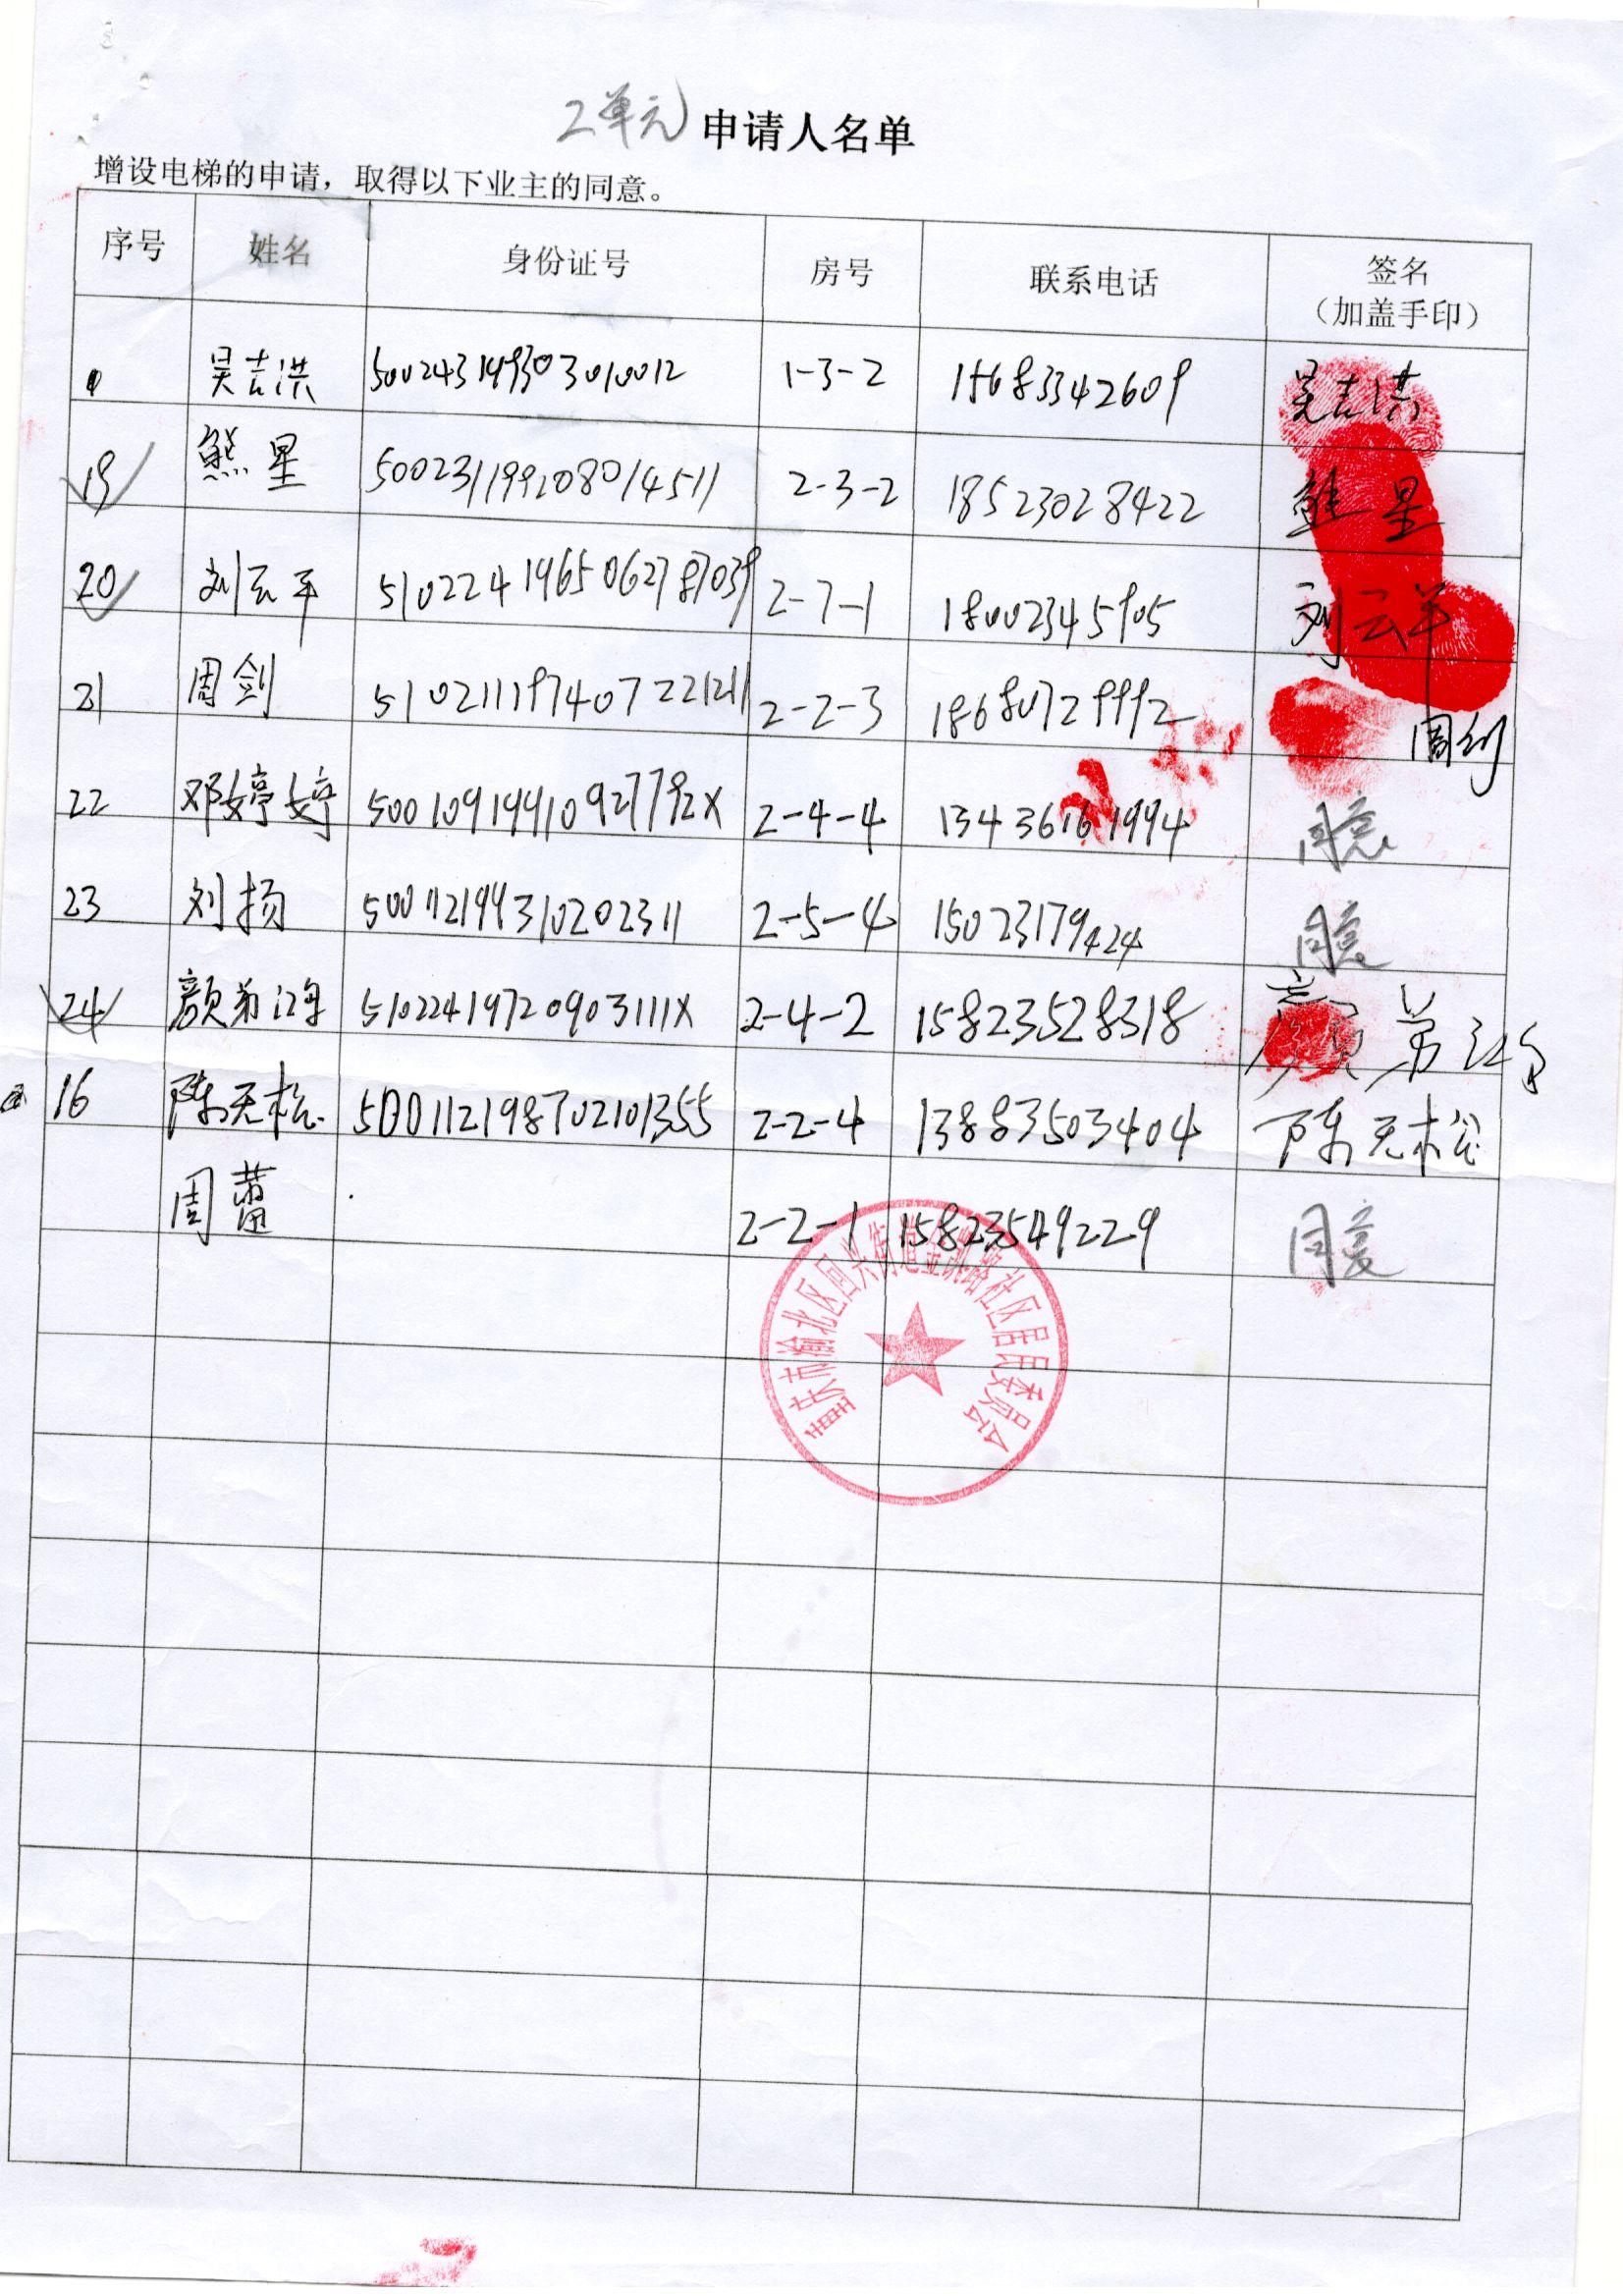 2单元 申请人名单
增设电梯的申请，取得以下业主的同意。
序号 姓名 身份证号 房号 联系电话 签名
（加盖手印）
吴吉洪 1-3-2 15683342609 吴吉洪
19 熊星 500231199208014511 2-3-2 18523028422 熊星
20 刘云平 2-7-1 18002345905 刘云平
21 周剑 2-2-3 18680729992 周剑
22 邓婷婷 500109199410927792X 2-4-4 13436161994 同意
23 刘扬 500112199310202311 2-5-4 15023179424 同意
24 颜弟海 51022419720903111X 2-4-2 15823528318 颜弟海
16 陈无松 500112198702101355 2-2-4 13883503404 陈无松
周蕾 2-2-1 15823549229 同意
重庆市渝北区回兴街道金锦路社区居民委员会